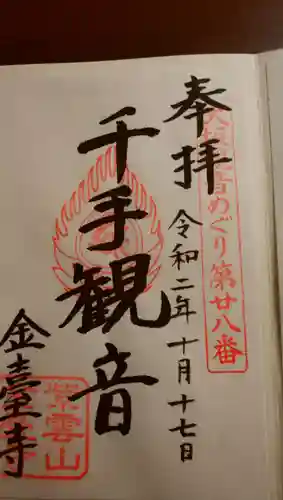 奉拝
令和二年十月十七日
観音めぐり第廿八番
千手観音
金臺寺
紫雲山